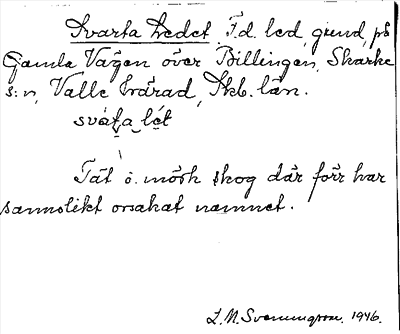 Svarta Ledet F.d. led, grind, på
Gamla Vägen över Billingen, Skärke
s:n, Valle härad, Skb. län.
svat̯a let
Tät o. mörk skog där förr har
sannolikt orsakat namnet.
L. M. Svenungsson. 1946.